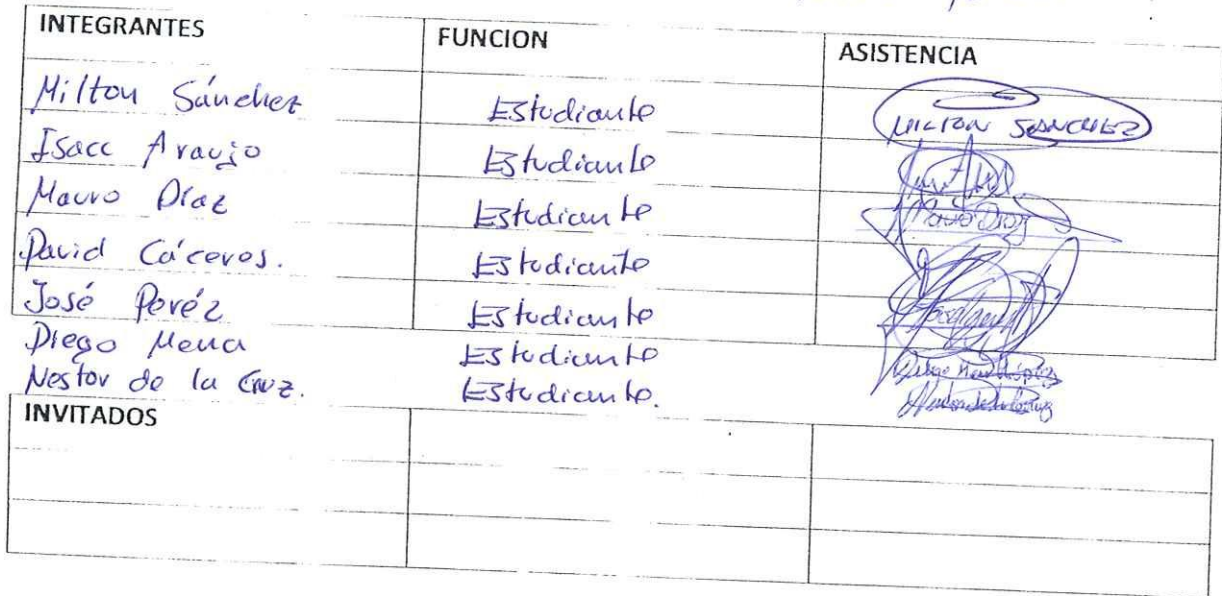 INTEGRANTES FUNCION ASISTENCIA
Milton Sánchez Estudiante MILTON SANCHEZ
Isacc Araujo Estudiante
Mauro Díaz Estudiante Mauro Díaz
David Cáceres. Estudiante
José Peréz Estudiante
Diego Mena Estudiante Diego Mena López
Nestor de la Cruz. Estudiante. Nestor de la Cruz
INVITADOS